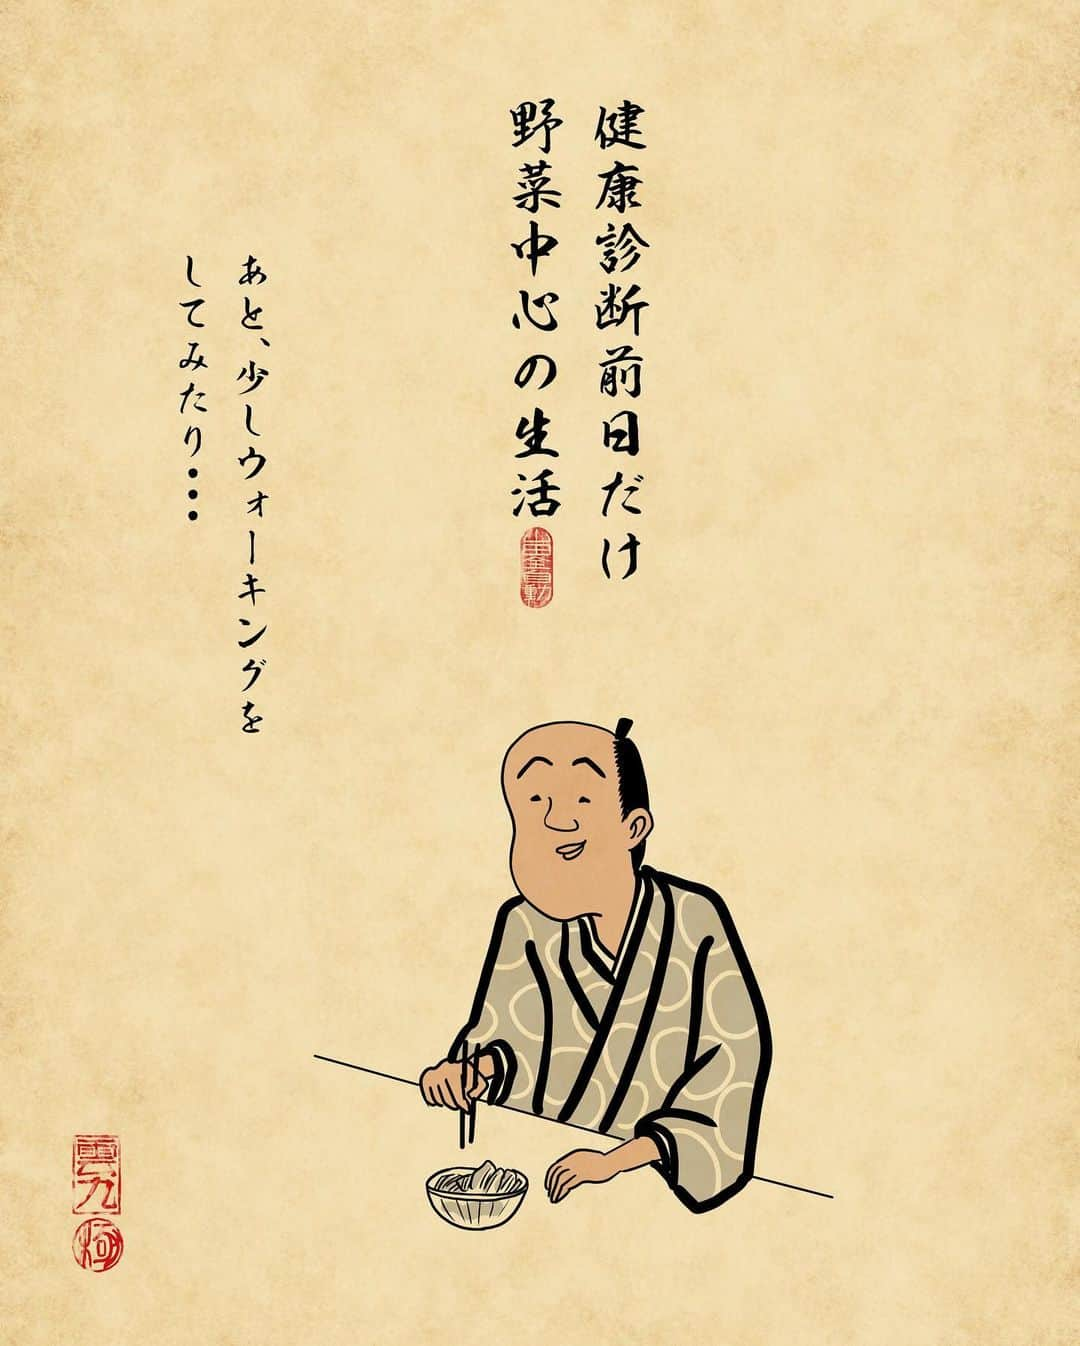 健康診断前日だけ
野菜中心の生活
あと、少しウォーキングを
してみたり・・・
雲九
極